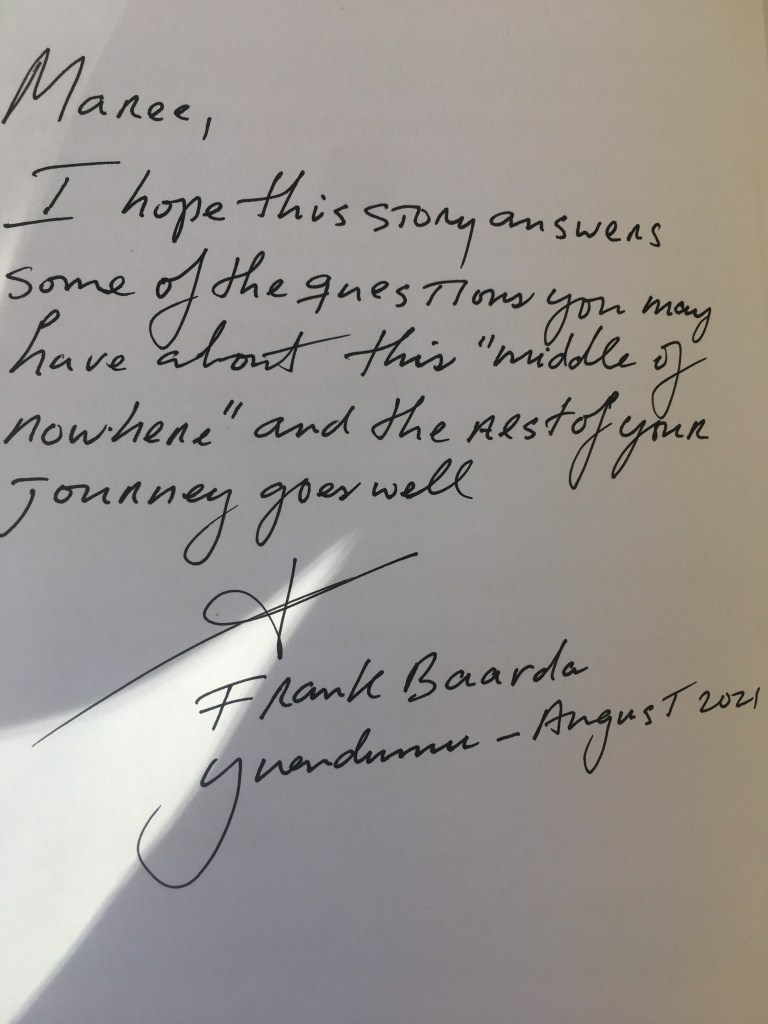 Maree,
I hope this story answers
some of the questions you may
have about this "middle of
nowhere" and the rest of your
Journey goes well
Frank Baarda
Yuendumu - August 2021